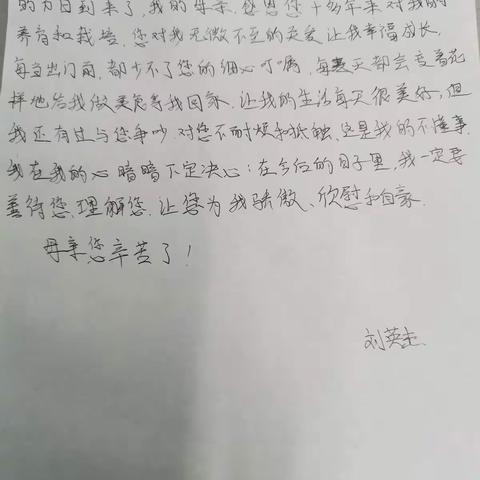 的为日到来了,我的母亲.您思您十多年来对我的
养育和栽培.您对我无微不至的关爱让我幸福成长.
每当出门前,都少不了您的细心叮嘱,每天都会变着花
样地给我做美食等我回家.让我的生活每天很美好,但
我还有过与您争吵对您不耐烦和抵触.这是我的不懂事.
我在我的心暗暗下定决心:在今后的日子里,我一定要
善待您,理解您.让您为我骄傲、欣慰和自豪.
母亲您辛苦了!
刘英杰